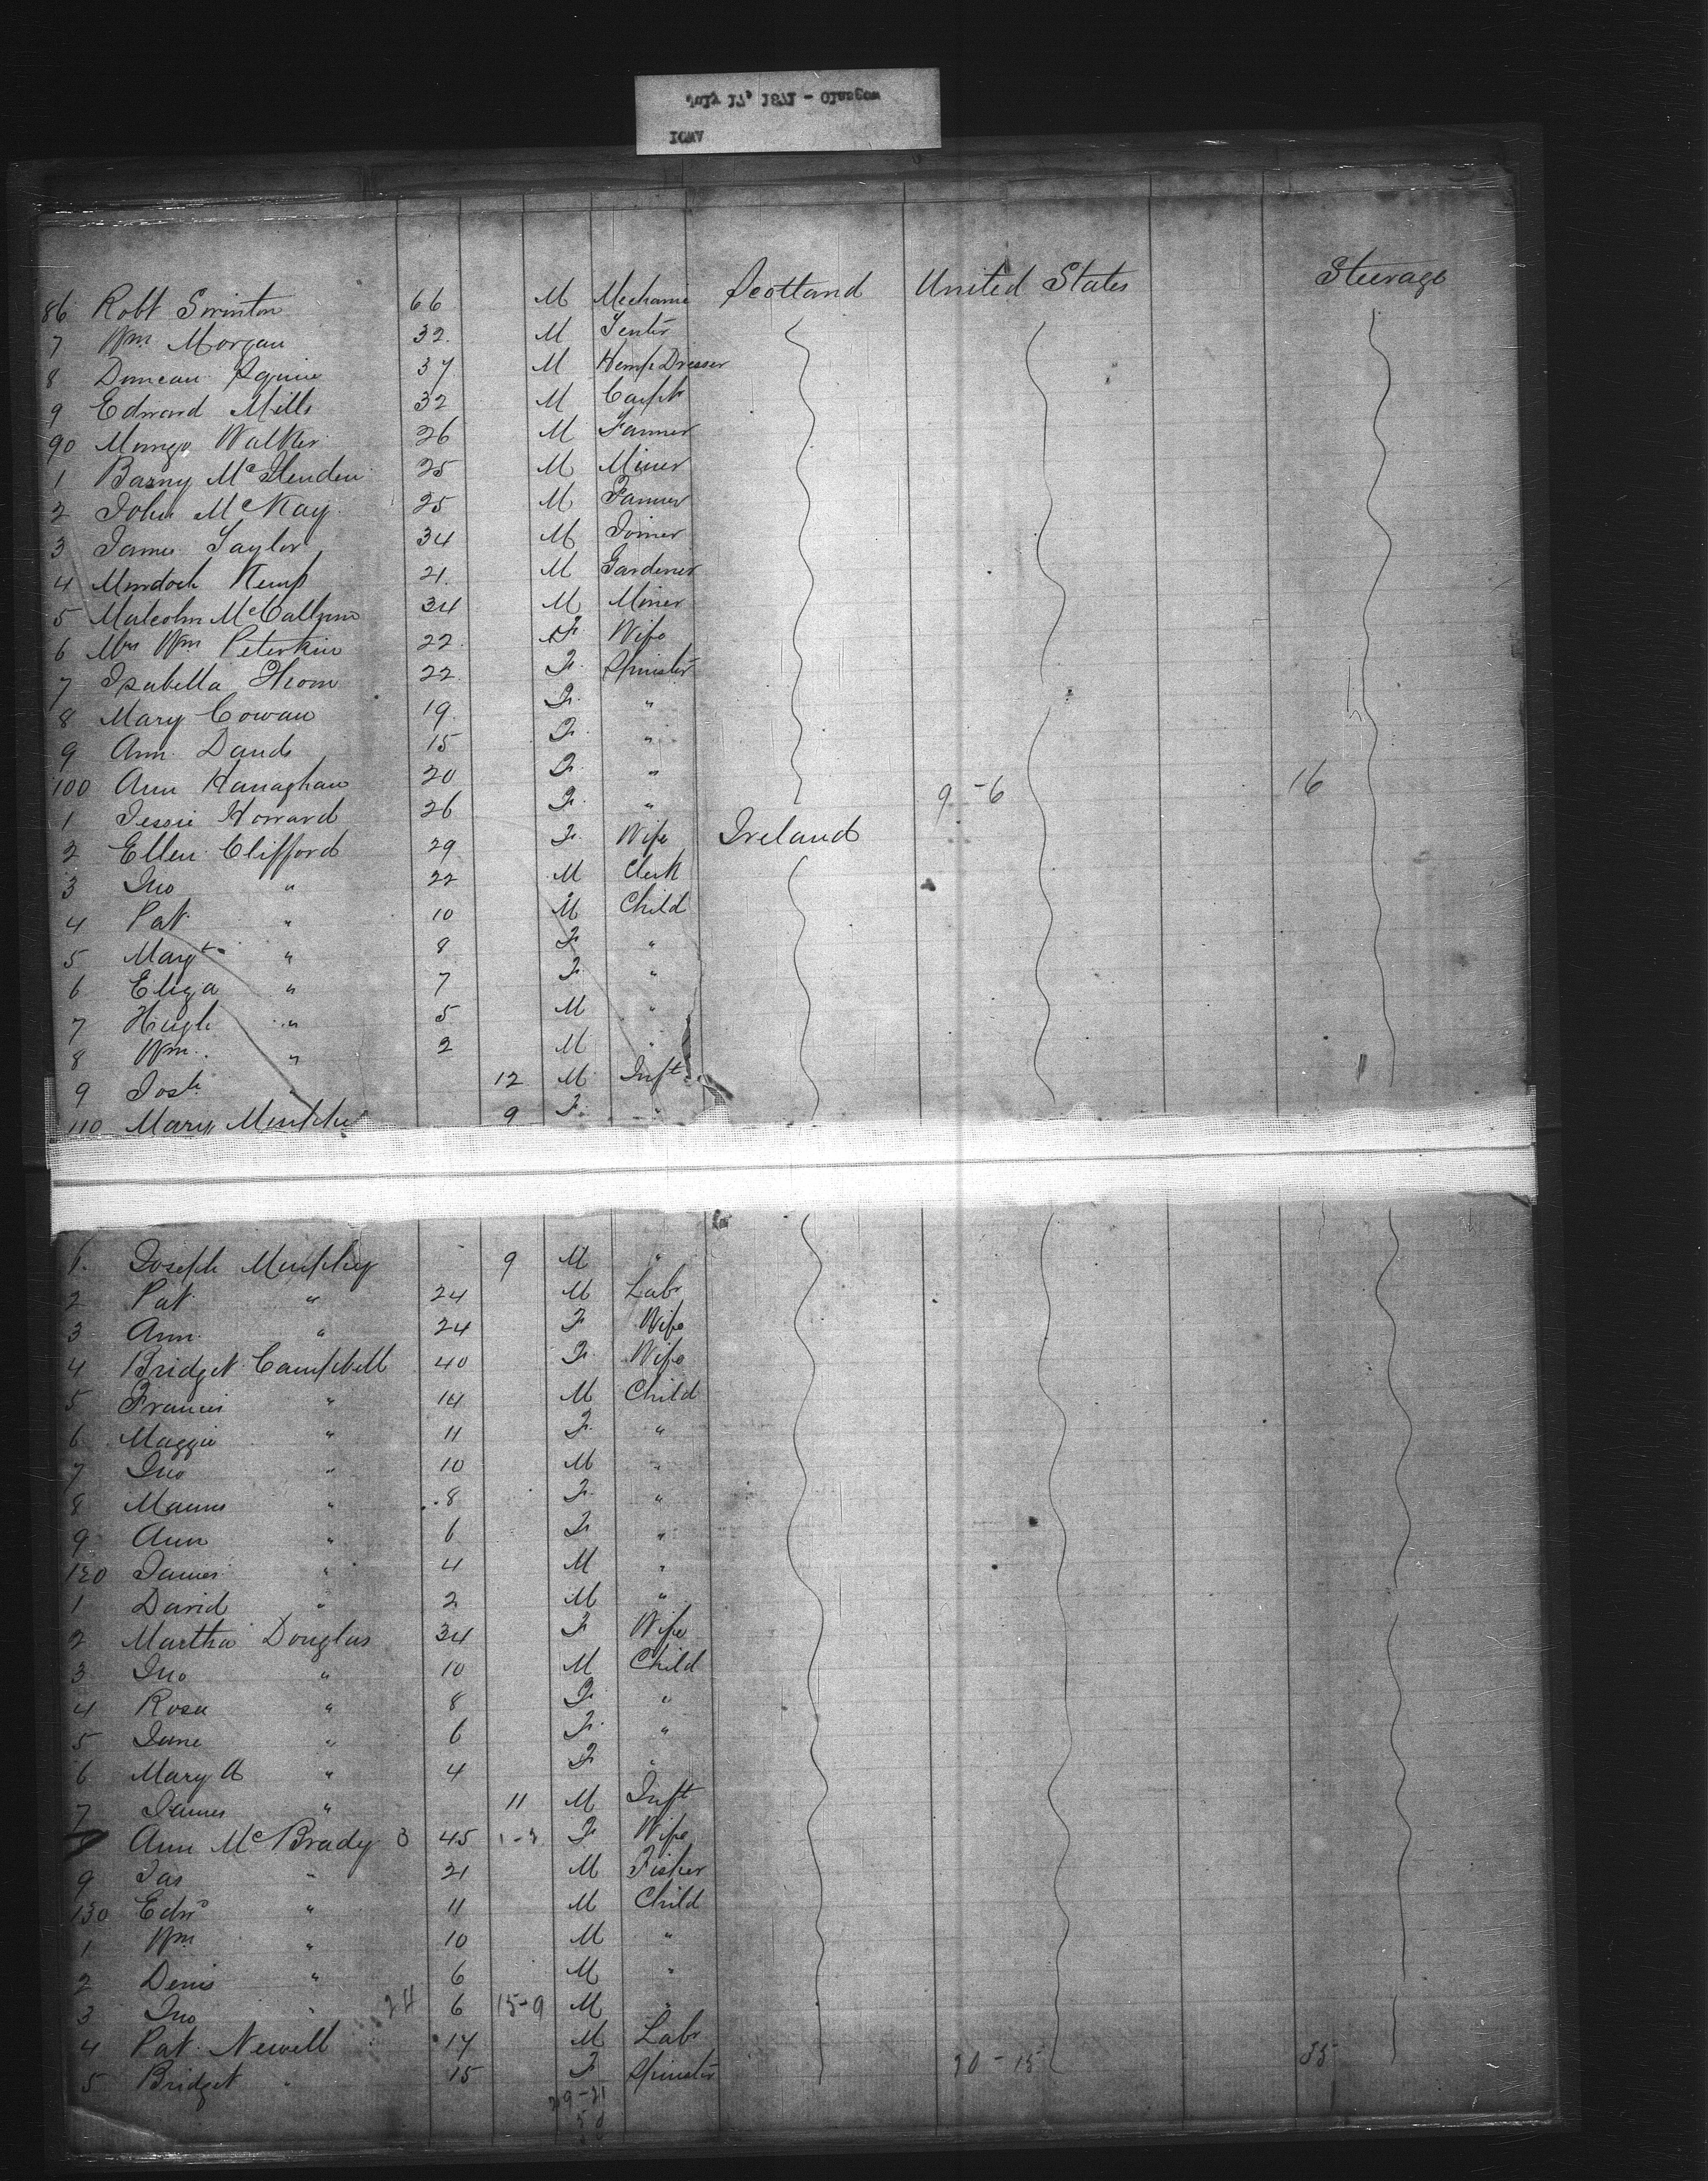 IOWA
July 17, 1871 - Glasgow
86 Robt Swinton 66 M Mechanic Scotland United States Steerage
7 Wm Morgan 32 M Tenter
8 Duncan Squire 37 M Hemp Dresser
9 Edward Mills 32 M Carpt
90 Mungo Walker 26 M Farmer
1 Barny Mc 25 M Miner
2 John McKay 25 M Farmer
3 James Taylor 34 M Joiner
4 Murdoch Kemp 21 M Gardener
5 Malcolm McCallum 34 M Miner
6 Mrs Wm Peterkin 22 F Wife
7 Isabella Thom 22 F Spinster
8 Mary Cowan 19 F "
9 Ann Dauds 15 F "
100 Ann Hanaghan 20 F " 9-6 16
1 Jessie Howard 26 F "
2 Ellen Clifford 29 F Wife Ireland
3 Jno " 22 M Clerk
4 Pat " 10 M Child
5 Margt " 8 F "
6 Eliza " 7 F "
7 Hugh " 5 M "
8 Wm " 2 M "
9 Josh " 12 M Inft
110 Mary Murphy 9 F "
1 Joseph Murphy 9 M "
2 Pat " 24 M Labr
3 Ann " 24 F Wife
4 Bridget Campbell 40 F Wife
5 Francis " 14 M Child
6 Maggie " 11 F "
7 Jno " 10 M "
8 Manus " 8 F "
9 Ann " 6 F "
120 James " 4 M "
1 David " 2 M "
2 Martha Douglas 34 F Wife
3 Jno " 10 M Child
4 Rosa " 8 F "
5 Jane " 6 F "
6 Mary A " 4 F "
7 James " 11 M Inft
Ann McBrady 3 45 1-3 F Wife
9 Jas " 21 M Fisher
130 Edwd " 11 M Child
1 Wm " 10 M "
2 Denis " 6 M "
3 Jno " 24 6 15-9 M "
4 Pat Newell 17 M Labr
5 Bridget " 15 F Spinster 20-15 35
29-21